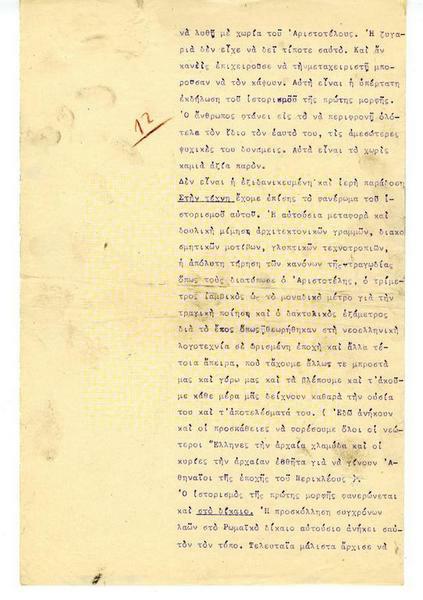 νὰ λυθῇ μὲ χωρία τοῦ Ἀριστοτέλους. Ἡ ζυγα-
ριὰ δὲν εἶχε νὰ δεῖ τίποτε σαὐτό. Καὶ ἂν
κανεὶς ἐπιχειροῦσε νὰ τὴν μεταχειριστῇ μπο-
ροῦσαν νὰ τὸν κάψουν. Αὐτὴ εἶναι ἡ ὑπέρτατη
ἐκδήλωση τοῦ ἱστορισμοῦ τῆς πρώτης μορφῆς.
Ὁ ἄνθρωπος φτάνει εἰς τὸ νὰ περιφρονῇ ὁλό-
τελα τὸν ἴδιο τὸν ἑαυτό του, τὶς ἀμεσώτερες
ψυχικές του δυνάμεις. Αὐτὰ εἶναι τὸ χωρὶς
καμιὰ ἀξία παρόν.
12
Δὲν εἶναι ἡ ἐξιδανικευμένη καὶ ἱερὴ παράδοση
Στὴν τέχνη ἔχομε ἐπίσης τὸ φανέρωμα τοῦ ἱ-
στορισμοῦ αὐτοῦ. Ἡ αὐτούσια μεταφορὰ καὶ
δουλικὴ μίμηση ἀρχιτεκτονικῶν γραμμῶν, διακο-
σμητικῶν μοτίβων, γλυπτικῶν τεχνοτροπιῶν,
ἡ ἀπόλυτη τήρηση τῶν κανόνων τῆς τραγωδίας
ὅπως τοὺς διατύπωσε ὁ Ἀριστοτέλης, ὁ τρίμε-
τρος ἰαμβικὸς ὡς τὸ μοναδικὸ μέτρο γιὰ τὴν
τραγικὴ ποίηση καὶ ὁ δακτυλικὸς ἑξάμετρος
διὰ τὸ ἔπος ὅπως θεωρήθηκαν στὴ νεοελληνικὴ
λογοτεχνία σὲ ὡρισμένη ἐποχὴ καὶ ἄλλα τέ-
τοια ἄπειρα, ποὺ τἄχουμε ἄλλως τε μπροστά
μας καὶ γύρω μας καὶ τὰ βλέπουμε καὶ τἀκοῦ-
με κάθε μέρα μᾶς δείχνουν καθαρὰ τὴν οὐσία
του καὶ τἀποτελέσματά του. ( Ἐδῶ ἀνήκουν
καὶ οἱ προσπάθειες νὰ φορέσουμε ὅλοι οἱ νεώ-
τεροι Ἕλληνες τὴν ἀρχαία χλαμύδα καὶ οἱ
κυρίες τὴν ἀρχαίαν ἐσθῆτα γιὰ νὰ γίνουν Ἀ-
θηναῖοι τῆς ἐποχῆς τοῦ Περικλέους ).
Ὁ ἱστορισμὸς τῆς πρώτης μορφῆς φανερώνεται
καὶ στὸ δίκαιο. Ἡ προσκόλληση συγχρόνων
λαῶν στὸ Ρωμαϊκὸ δίκαιο αὐτούσιο ἀνήκει σαὐ-
τὸν τὸν τύπο. Τελευταῖα μάλιστα ἄρχισε νὰ